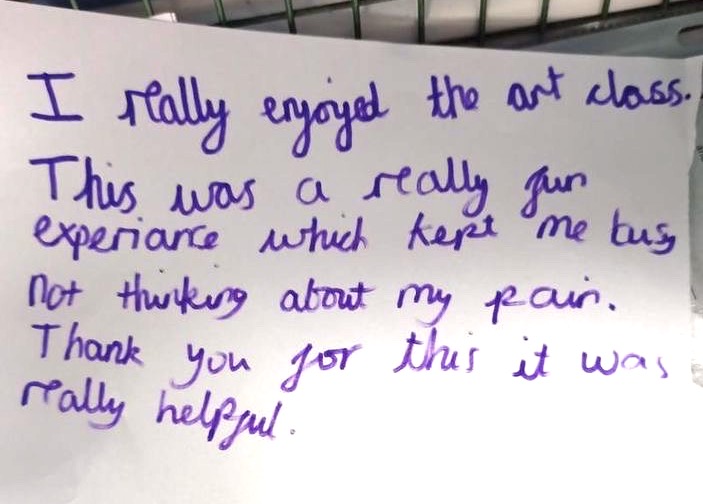 I really enjoyed the art class.
This was a really fun
experiance which kept me busy
not thinking about my pain.
Thank you for this it was
really helpful.